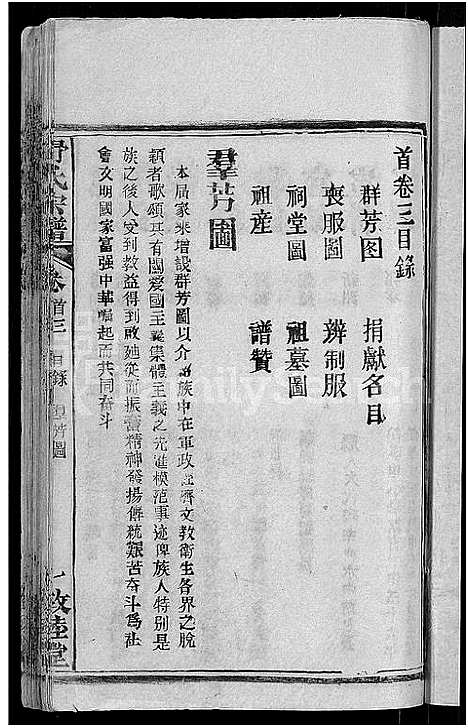 首卷三目錄
群芳图 捐獻名目
喪服圖 辨制服
祠堂圖 祖墓圖
祖産 譜贊
羣芳圖
本届家乘增設群芳圖以介紹族中在軍政經濟文教衛生各界之脱
穎者歌頌其有關爱國主義集體主义之先進模范事迹俾族人特别是
族之後人受到教益得到啟廸從而振奮精神發揚傳統艱苦奋斗爲社
會文明國家富强中華崛起而共同奋斗
氏宗譜 卷首三 目錄 羣芳圖 一 敦睦堂
FamilySearch